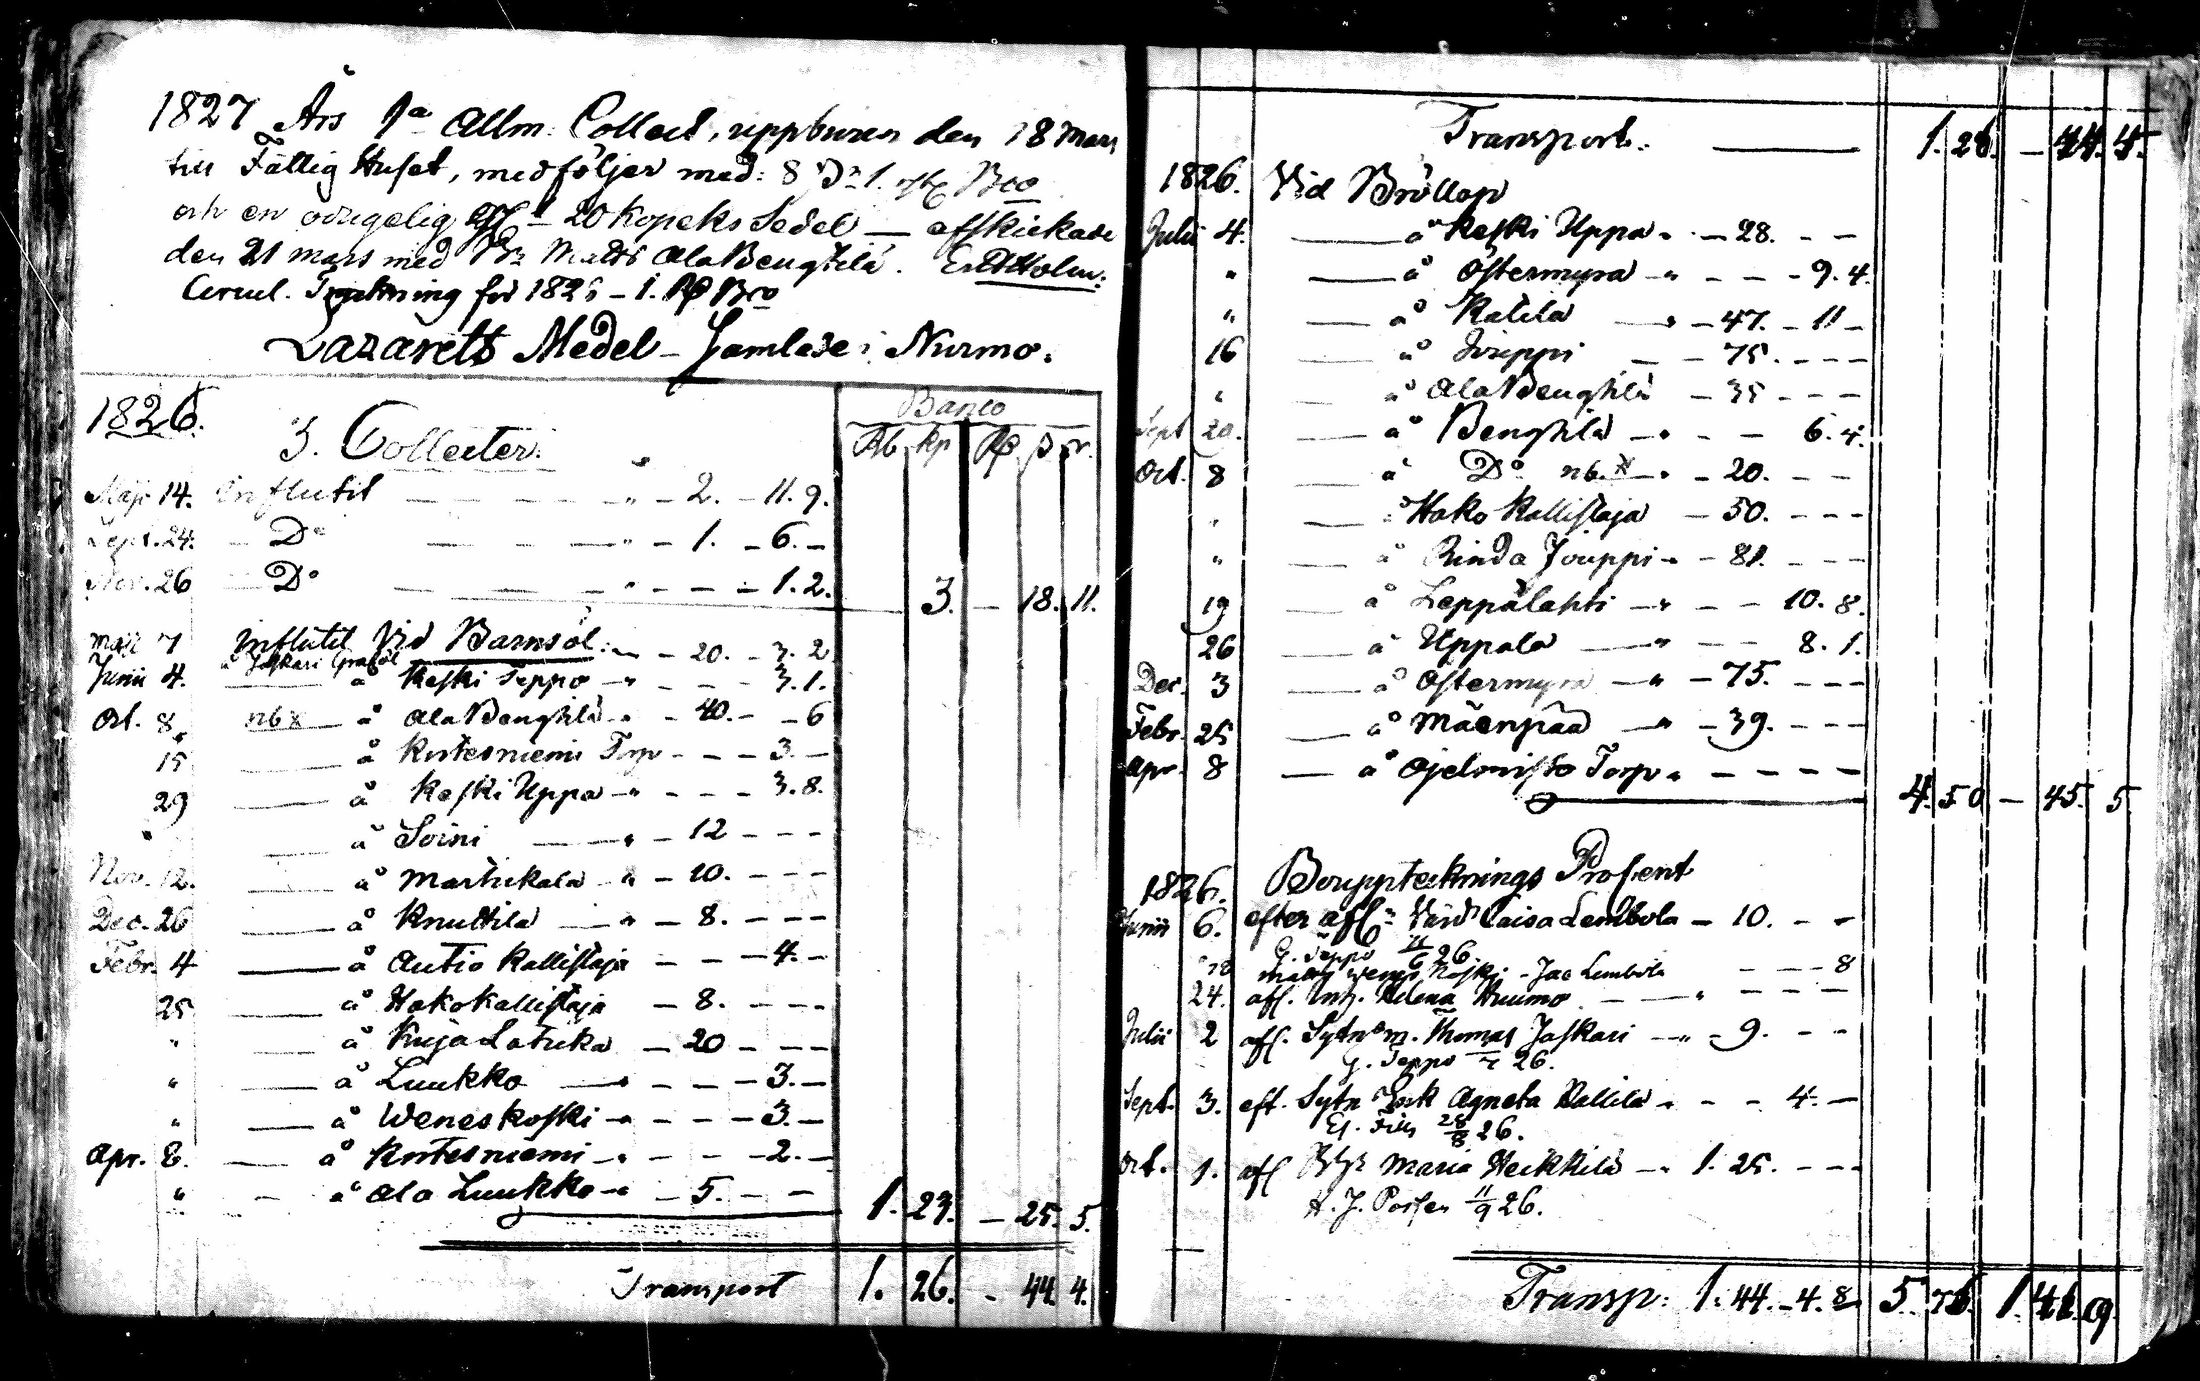 1827 Års 1a Allm: Collect, uppburen den 18 Mars
till Fattig Huset, medföljer med: 8 Bco
och en odugelig 20 Kopeks Sedel — afskickade
den 21 mars med Matts AlaBenghtilä. Er. Holm:
Circul. för 1826 – 1. Rd Bco
Lazaretts Medel – Samlade i Nurmo.
1826. Banco
3. Collecter. Rb kp Rd s r.
Maji 14. Influtit — " – 2. – 11. 9.
Sept. 24. – Do — " – 1. – 6. –
Nov. 26 — Do — " – – – 1. 2. 3. – 18. 11.
Maji 7 Influtit Vid Barnsöl: – 20. – 3. 2
å Jaskari Graföl
Junii 4. — å Keski Seppo – " – – – 3. 1.
Oct. 8 nb — å AlaBenghtilä – 40. – – 6
15 — å Kortesniemi Torp – – – 3. –
29 — å Keski Uppa – " – – – 3. 8.
" — å Soini — " – 12 – – –
Nov. 12. — å Martikala – " – 10. – – –
Dec. 26 — å Knuttila – " – 8. – – –
Febr. 4 — å Autio Kallistaja – – – 4. –
25 — å Hakokallistaja – 8. – – –
" — å Kuja Latuka – 20 – – –
" — å Luukko — " – – – 3. –
" — å Weneskoski – " – – – 3. –
Apr. 8. — å Kortesniemi – " – – – 2. –
" – å Ala Luukko – " – 5. – – 1. 23. – 25. 5.
Transport 1. 26. – 44. 4.
Transport. — 1. 26. – 44. 4.
1826. Vid Bröllop
Julii 4. — å Keski Uppa " – 28. – –
" — å Östermyra – " – – – 9. 4.
" — å Katila — " – 47. – 11 –
16 — å Jouppi – – 75. – – –
" — å AlaBenghtilä – 35 – – –
Sept 20. — å Benghtilä – " – – 6. 4.
Oct. 8 — å Do nb. – " – 20. – –
" — å Hako Kallistaja – 50. – – –
" — å Rinda Jouppi – " – 81. – – –
19 — å Leppälahti – " – – 10. 8.
26 — å Uppala — " – – 8. 1.
Dec. 3 — å Östermyra – " – 75. – – –
Febr. 25 — å Mäenpää – " – 39. – – –
Apr. 8 — å Ojelmisto Torp " – – – –
4. 50 – 45. 5
1826. Bouppteknings Procent
Junii 6. efter afl. Caisa Lembola – 10. – –
G. Seppo 26
18 Koski – Jac Lembola – – – 8
24. afl. Inh. Helena Huumo — " – – –
Julii 2 afl. Sytn.m. Thomas Jaskari — " – 9. – –
G. Seppo 26.
Sept. 3. eft. Sytn. Enk Agneta Kallila " – – 4. –
28/8 26.
Oct. 1. afl Maria Heikkilä – " 1. 25. – – –
H. J. Porsen 11/9 26.
Transp: 1. 44. – 4. 8 5. 76. 1. 46. 9.